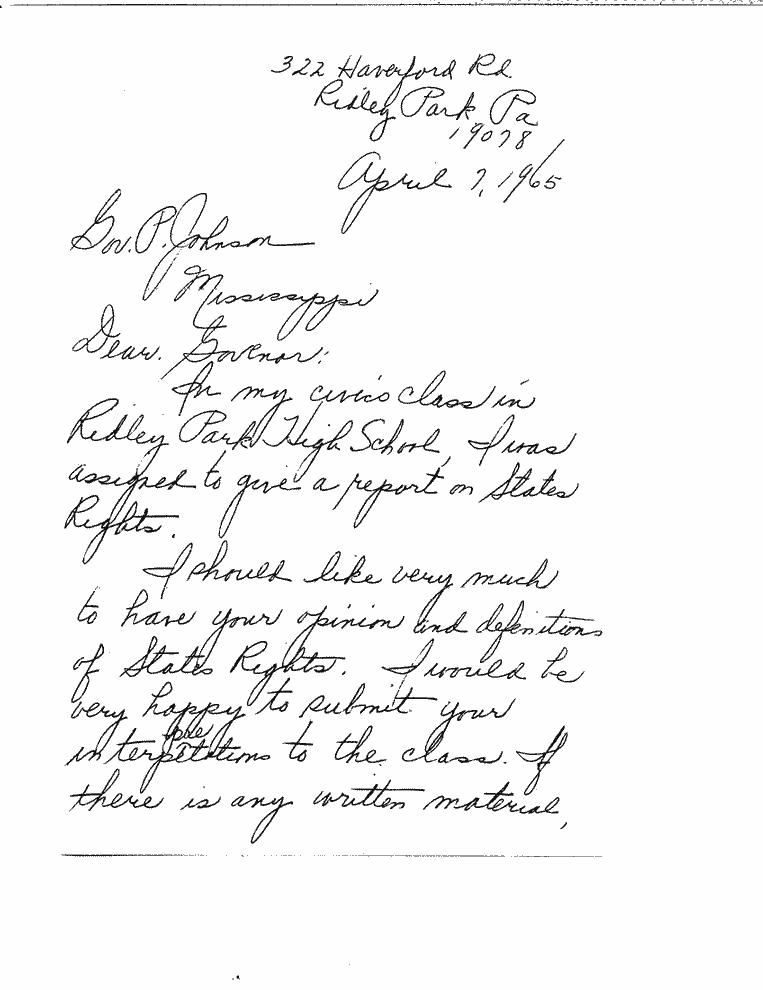 322 Haverford Rd.
Ridley Park, Pa
19078
April 7, 1965
Gov. P. Johnson
Mississippi
Dear. Govenor:
In my civics class in
Ridley Park High School, I was
assigned to give a report on States
Rights.
I should like very much
to have your opinion and definitions
of States Rights. I would be
very happy to submit your
pre
interpetations to the class. If
there is any written material,